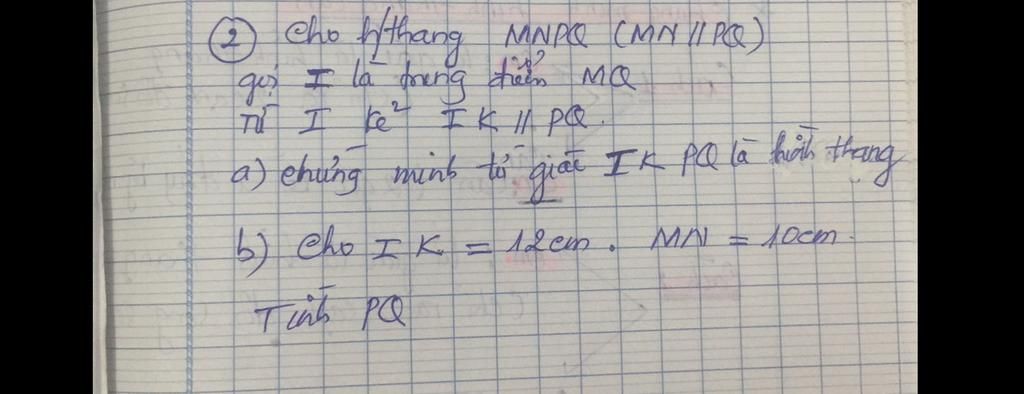 ② Cho h/thang MNPQ (MN // PQ)
gọi I là trung điểm MQ
Từ I kẻ IK // PQ.
a) chứng minh tứ giác IKPQ là hình thang
b) Cho IK = 12cm. MN = 10cm.
Tính PQ